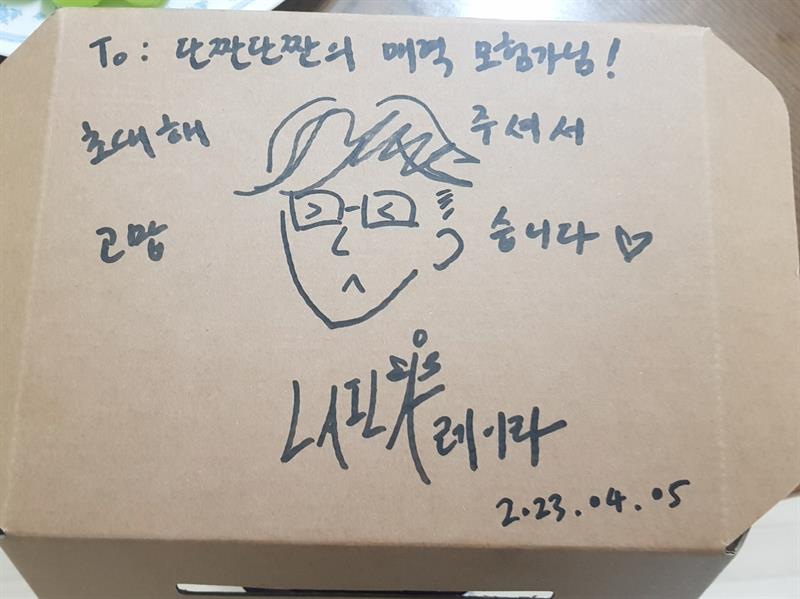 To: 단짠단짠의 매력 모험가님!
초대해 주셔서
고맙 습니다 ♡
LAILA 레이라
2023.04.05